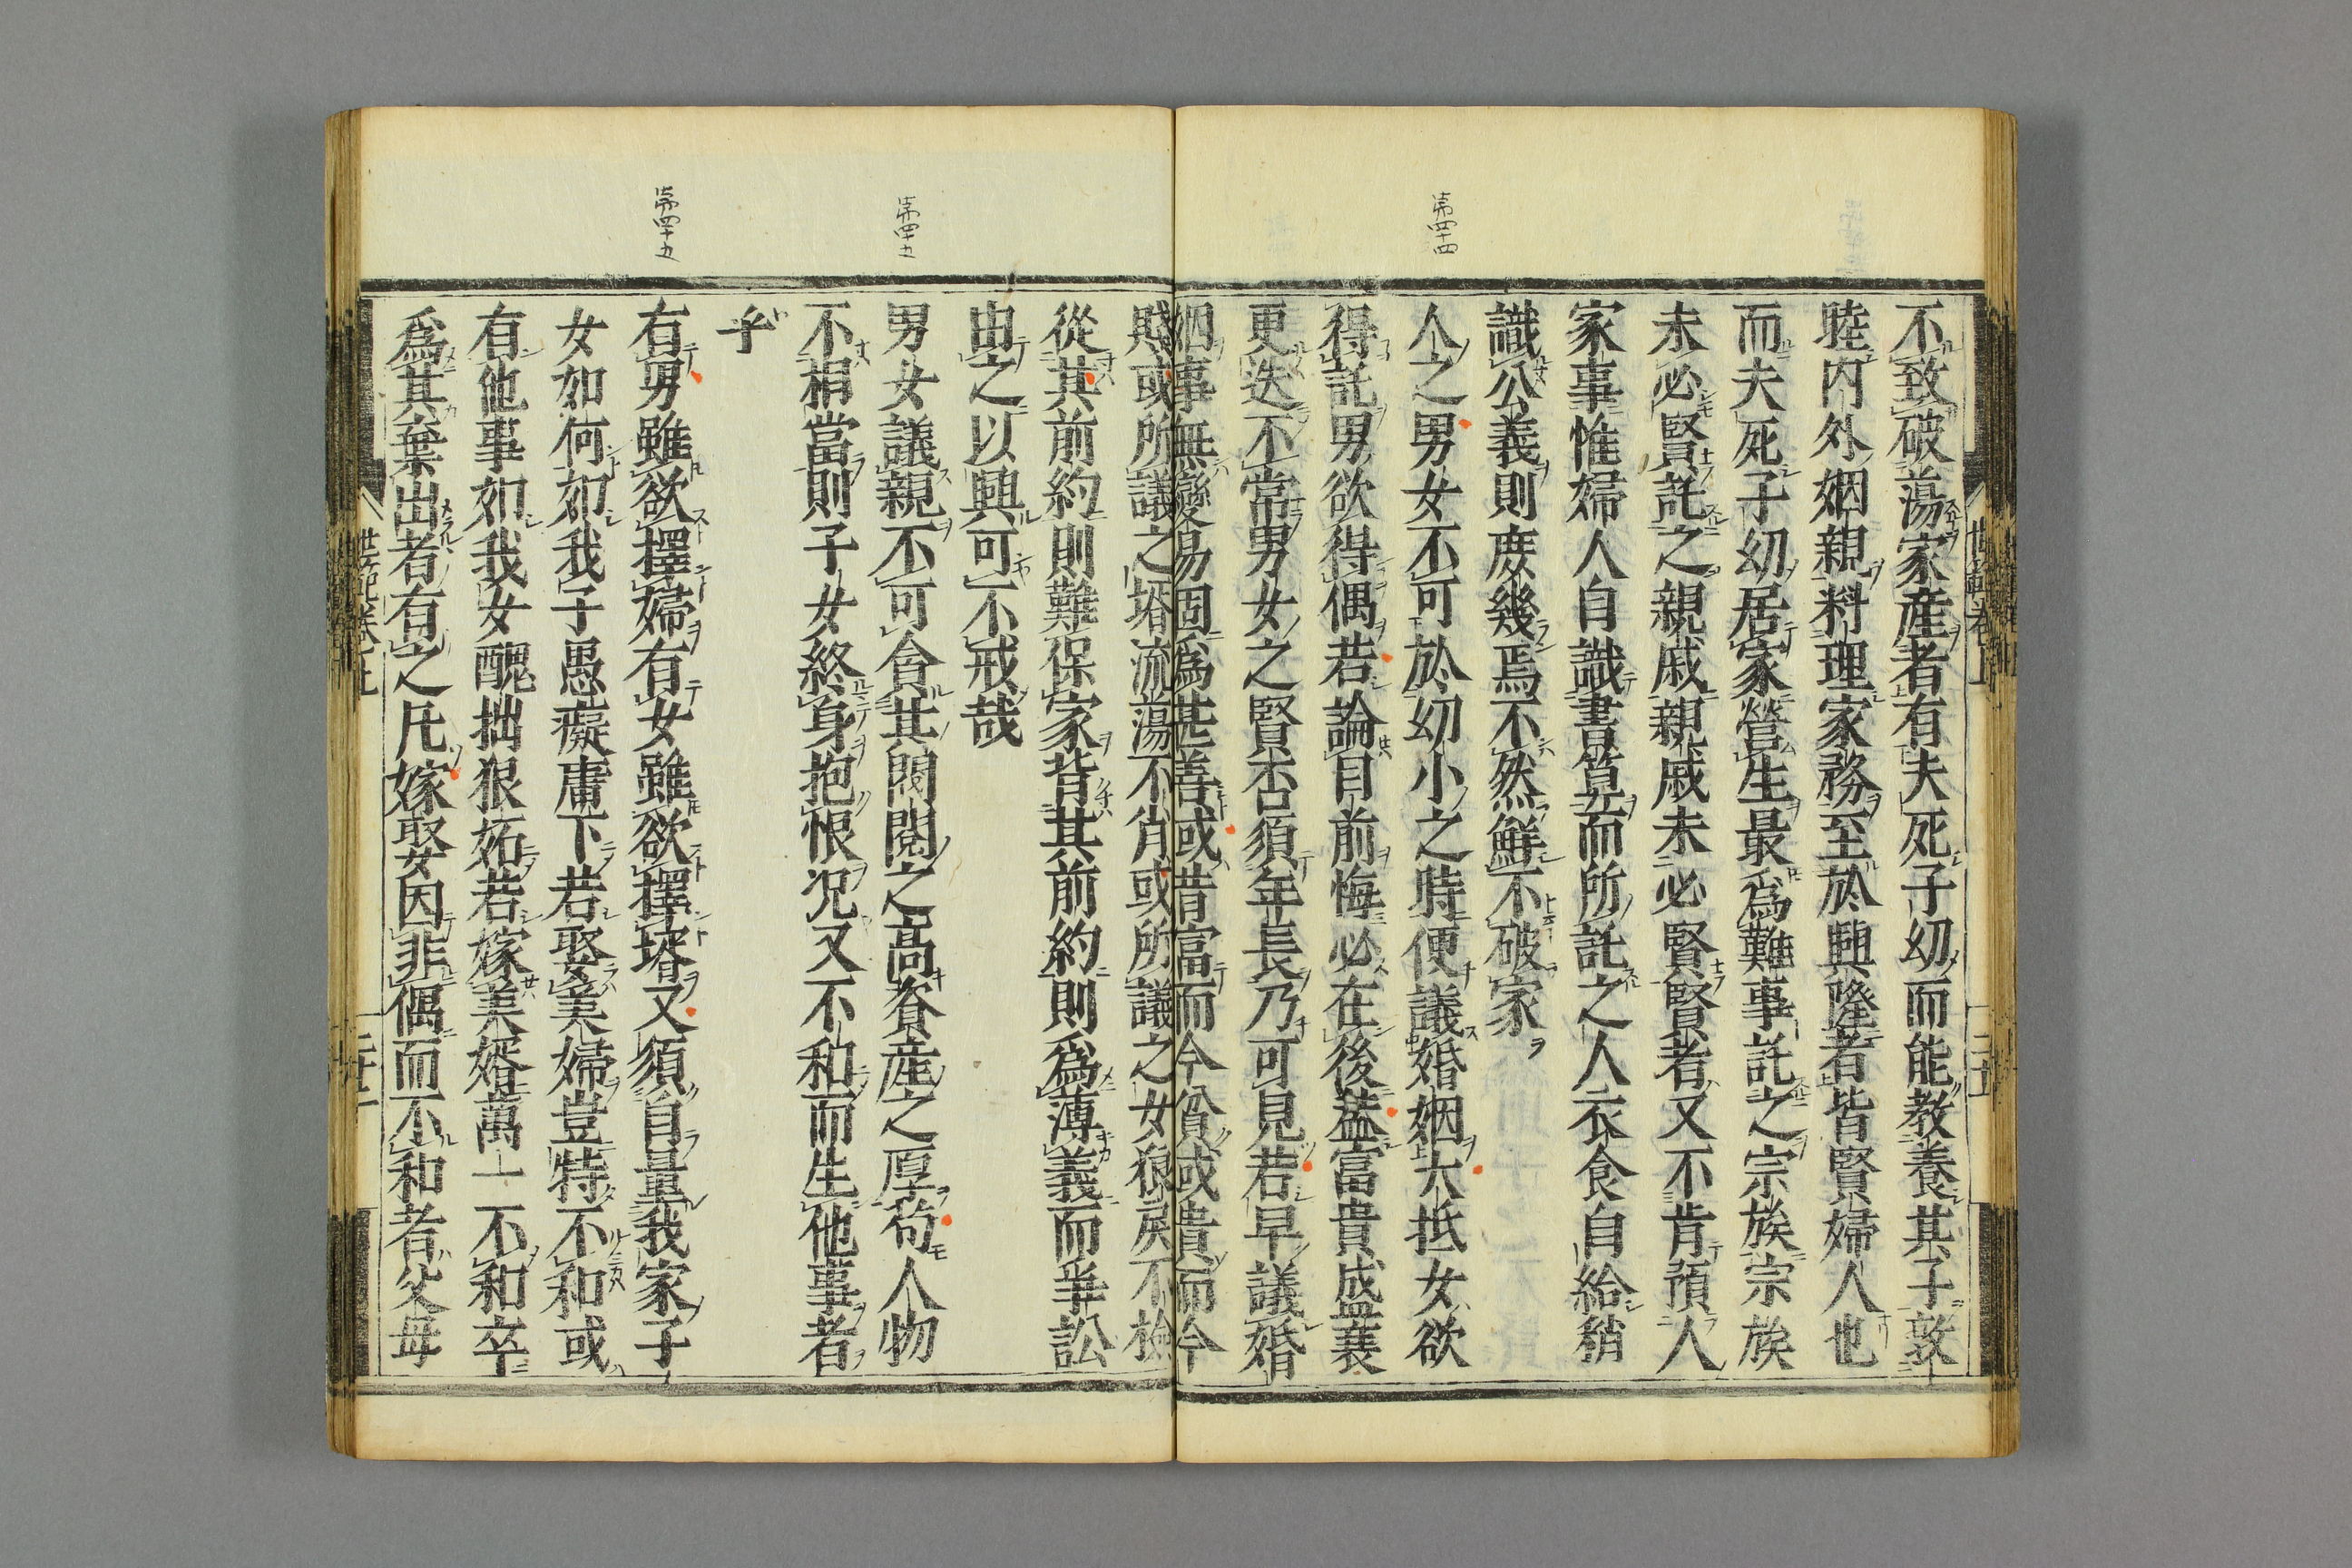 不致破蕩家産者有夫死子幼而能教養其子敦
睦内外姻親料理家務至於興隆者皆賢婦人也
而夫死子幼居家營生最爲難事託之宗族宗族
未必賢託之親戚親戚未必賢賢者又不肯預人
家事惟婦人自識書筭而所託之人衣食自給稍
識公義則庶幾焉不然鮮不破家
第四十四
人之男女不可於幼小之時便議婚姻大抵女欲
得託男欲得偶若論目前悔必在後蓋富貴盛衰
更迭不常男女之賢否須年長乃可見若早議婚
姻事無變易固爲甚善或昔富而今貧或貴而今
賤或所議之壻流蕩不肖或所議之女狠戾不檢
從其前約則難保家背其前約則爲薄義而爭訟
由之以興可不戒哉
男女議親不可貪其閥閲之高資産之厚苟人物
不相當則子女終身抱恨况又不和而生他事者
乎
第四十五
有男雖欲擇婦有女雖欲擇壻又須自量我家子
女如何如我子愚癡庸下若娶美婦豈特不和或
有他事如我女醜拙狠妬若嫁美婿萬一不和卒
爲其棄出者有之凡嫁娶因非偶而不和者父母